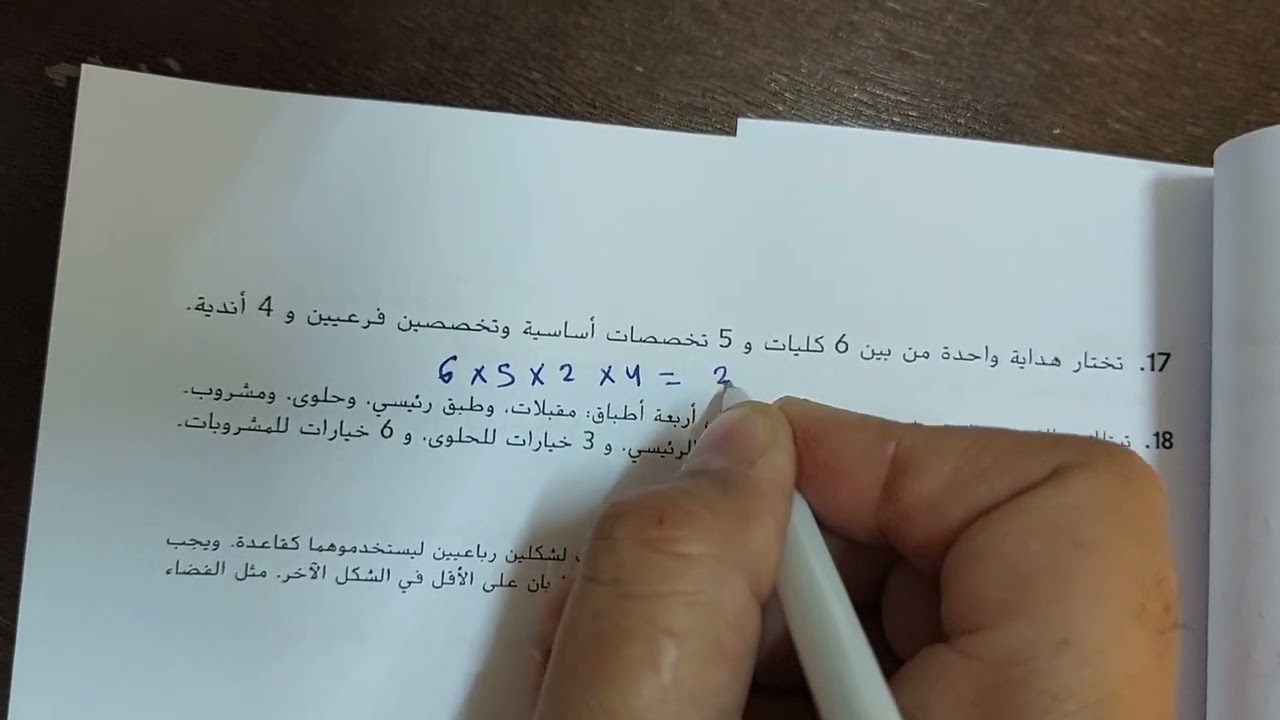 17. تختار هداية واحدة من بين 6 كليات و 5 تخصصات أساسية وتخصصين فرعيين و 4 أندية.
6 x 5 x 2 x 4 = 2
18. أربعة أطباق: مقبلات، وطبق رئيسي، وحلوى، ومشروب.
الرئيسي، و 3 خيارات للحلوى، و 6 خيارات للمشروبات.
لشكلين رباعيين ليستخدموهما كقاعدة. ويجب
على الأقل في الشكل الآخر. مثل الفضاء